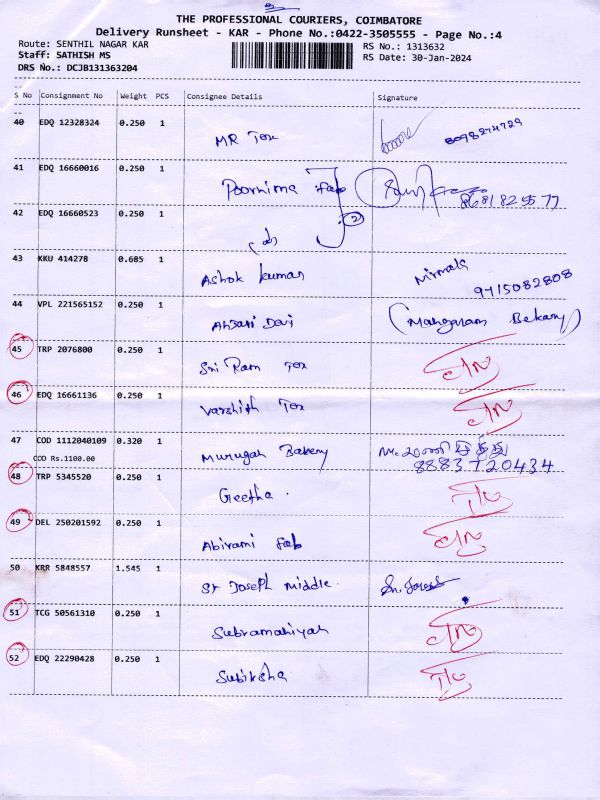 THE PROFESSIONAL COURIERS, COIMBATORE
Delivery Runsheet - KAR - Phone No.:0422-3505555 - Page No.:4
Route: SENTHIL NAGAR KAR
RS No.: 1313632
Staff: SATHISH MS
RS Date: 30-Jan-2024
DRS No.: DCJB131363204
S No Consignment No Weight PCS Consignee Details Signature
40 EDQ 12328324 0.250 1 MR Tex
41 EDQ 16660016 0.250 1 Poornima Fab
42 EDQ 16660523 0.250 1 2
43 KKU 414278 0.685 1 Ashok kumar Nirmala 9715082808
44 VPL 221565152 0.250 1 Devi (Mahgaram Bekary)
45 TRP 2076800 0.250 1 Sri Ram Tex
46 EDQ 16661136 0.250 1 Varshith Tex
47 COD 1112040109 0.320 1 Murugan Bakery 8883720434
COD Rs.1100.00
48 TRP 5345520 0.250 1 Geetha.
49 DEL 250201592 0.250 1 Abirami fab
50 KRR 5848557 1.545 1 St Joseph Middle.
51 TCG 50561310 0.250 1 Subramaniyan
52 EDQ 22290428 0.250 1 Subiksha